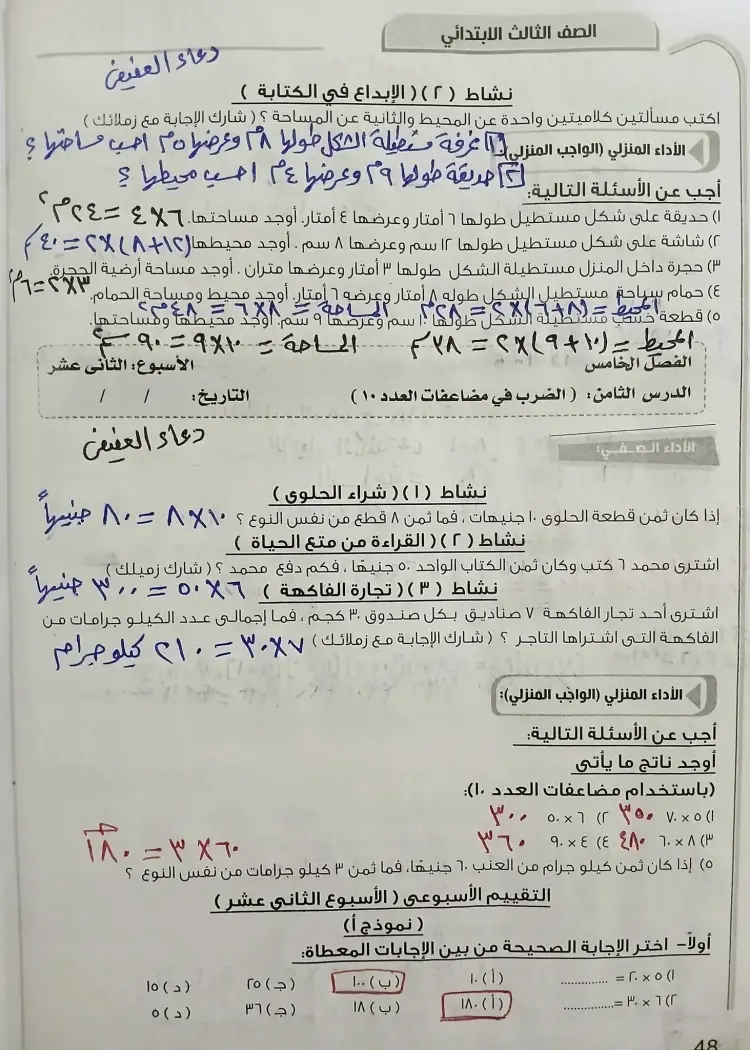 الصف الثالث الابتدائي
دعاء العفيفى
نشاط (٢) ( الإبداع في الكتابة )
اكتب مسألتين كلاميتين واحدة عن المحيط والثانية عن المساحة ؟ ( شارك الإجابة مع زملائك )
الأداء المنزلي (الواجب المنزلي):
١) غرفة مستطيلة الشكل طولها ٨م وعرضها ٥م احسب مساحتها ؟
٢) حديقة طولها ٩م وعرضها ٤م احسب محيطها ؟
أجب عن الأسئلة التالية:
١) حديقة على شكل مستطيل طولها ٦ أمتار وعرضها ٤ أمتار. أوجد مساحتها. ٦×٤ = ٢٤م٢
٢) شاشة على شكل مستطيل طولها ١٢ سم وعرضها ٨ سم . أوجد محيطها (١٢+٨)×٢ = ٤٠سم
٣) حجرة داخل المنزل مستطيلة الشكل طولها ٣ أمتار وعرضها متران . أوجد مساحة أرضية الحجرة. ٣×٢=٦م٢
٤) حمام سباحة مستطيل الشكل طوله ٨ أمتار وعرضه ٦ أمتار. أوجد محيط ومساحة الحمام.
المحيط = (٨+٦)×٢ = ٢٨م المساحة = ٨×٦ = ٤٨م٢
٥) قطعة خشب مستطيلة الشكل طولها ١٠ سم وعرضها ٩ سم. أوجد محيطها ومساحتها.
المحيط = (١٠+٩)×٢ = ٣٨سم المساحة = ١٠×٩ = ٩٠سم٢
الفصل الخامس الأسبوع: الثانى عشر
الدرس الثامن: ( الضرب في مضاعفات العدد ١٠ ) التاريخ: / /
دعاء العفيفى
الأداء الـصـفـي:
نشاط (١) ( شراء الحلوى )
إذا كان ثمن قطعة الحلوى ١٠ جنيهات ، فما ثمن ٨ قطع من نفس النوع ؟ ١٠×٨ = ٨٠ جنيهاً
نشاط (٢) ( القراءة من متع الحياة )
اشترى محمد ٦ كتب وكان ثمن الكتاب الواحد ٥٠ جنيهًا ، فكم دفع محمد ؟ ( شارك زميلك )
نشاط (٣) ( تجارة الفاكهة ) ٦×٥٠ = ٣٠٠ جنيهاً
اشترى أحد تجار الفاكهة ٧ صناديق بكل صندوق ٣٠ كجم ، فما إجمالى عدد الكيلو جرامات من
الفاكهة التى اشتراها التاجر ؟ ( شارك الإجابة مع زملائك ) ٧×٣٠ = ٢١٠ كيلو جرام
الأداء المنزلي (الواجب المنزلي):
أجب عن الأسئلة التالية:
أوجد ناتج ما يأتى
(باستخدام مضاعفات العدد ١٠):
١) ٥ × ٧٠ ٣٥٠ ٢) ٦ × ٥٠ ٣٠٠
٣) ٨ × ٦٠ ٤٨٠ ٤) ٤ × ٩٠ ٣٦٠
٦٠ × ٣ = ١٨٠ جـ
٥) إذا كان ثمن كيلو جرام من العنب ٦٠ جنيهًا، فما ثمن ٣ كيلو جرامات من نفس النوع ؟
التقييم الأسبوعى ( الأسبوع الثانى عشر )
( نموذج أ )
أولاً- اختر الإجابة الصحيحة من بين الإجابات المعطاة:
١) ٥ × ٢٠ = ............ (أ) ١٠ (ب) ١٠٠ (جـ) ٢٥ (د) ١٥
٢) ٦ × ٣٠ = ............ (أ) ١٨٠ (ب) ١٨ (جـ) ٣٦ (د) ٥
48